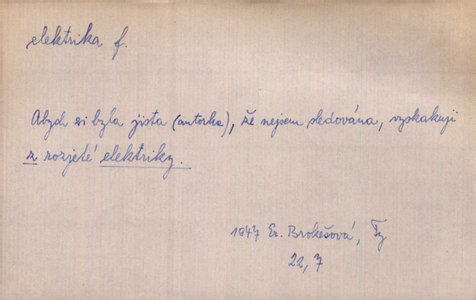 elektrika f.
Abych si byla jista (autorka), že nejsem sledována, vyskakuji
z rozjeté elektriky.
1947 Er. Brokešová, Ty
22, 7